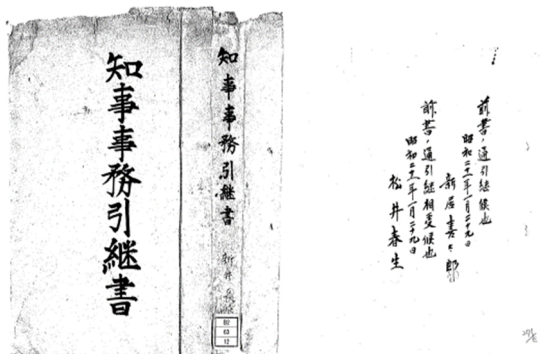 知事事務引継書
知事事務引継書
前書ノ通引継候也
昭和二十一年一月二十九日
新居善太郎
前書ノ通引継相受候也
昭和二十一年一月二十九日
松井春生